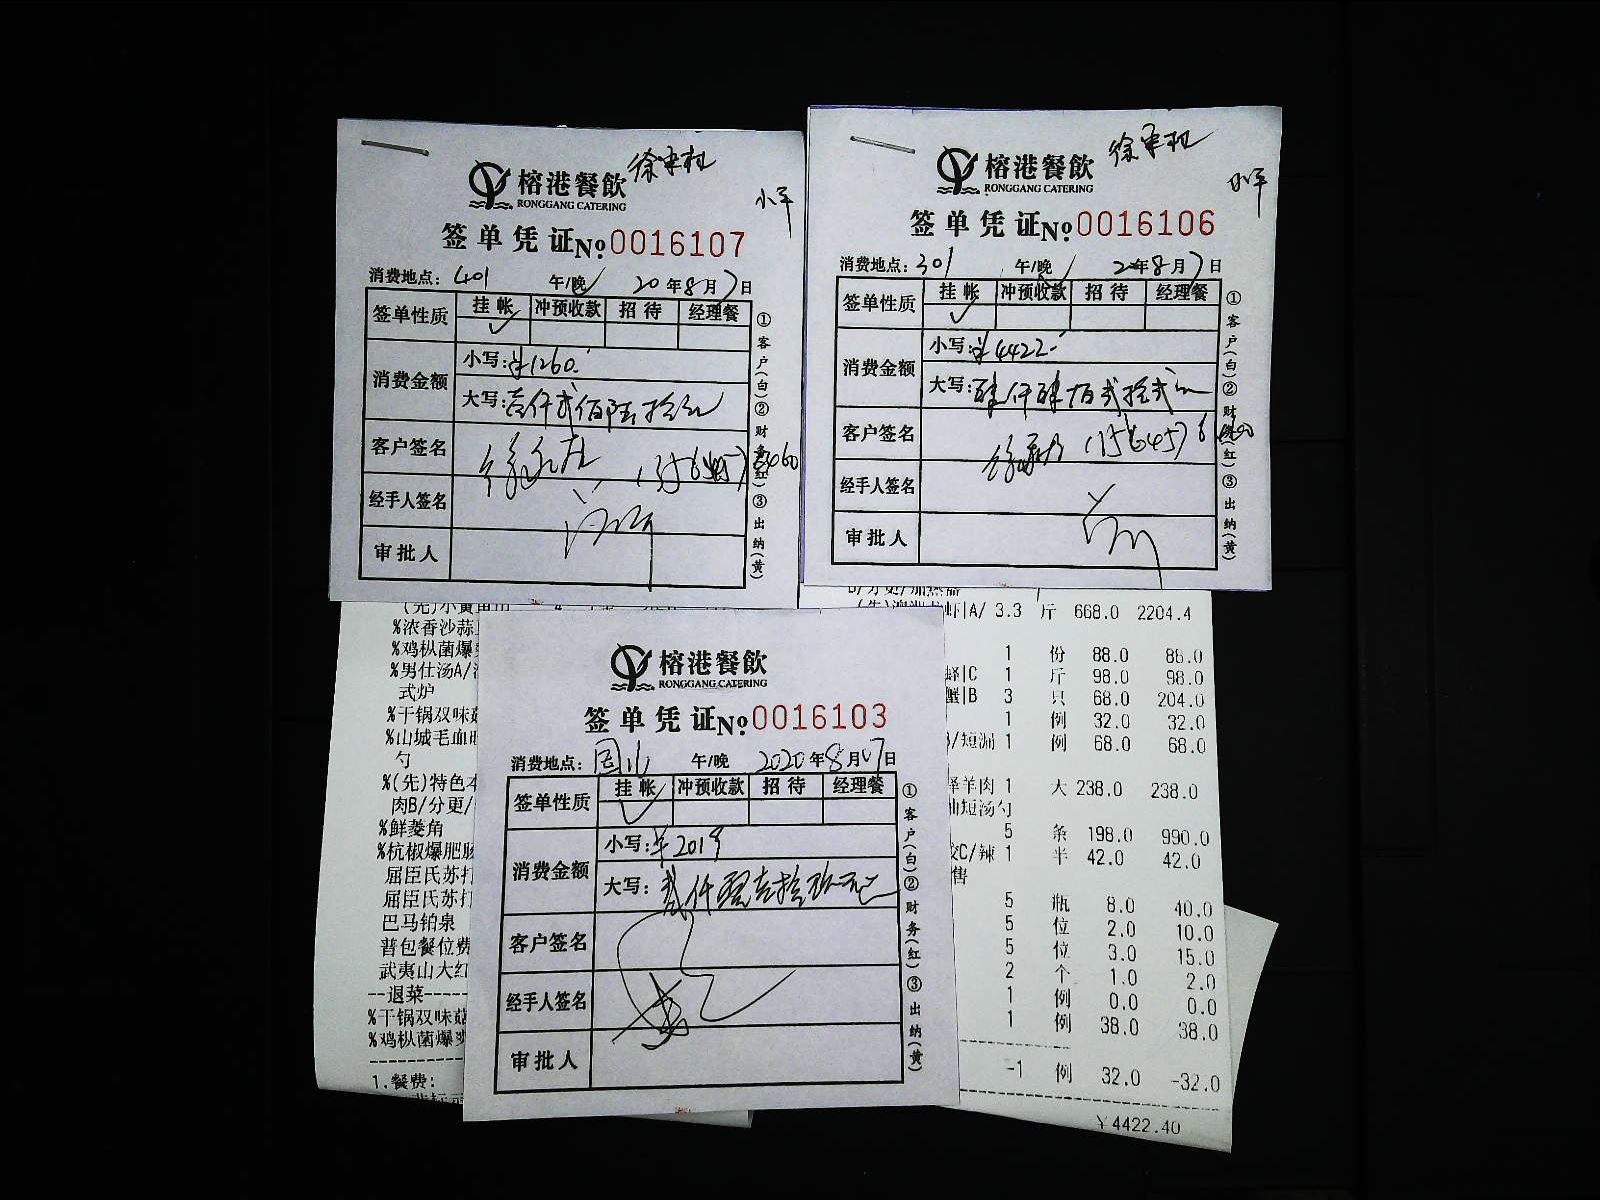 榕港餐飲
RONGGANG CATERING
小平
签单凭证 No 0016107
消费地点: 401 午/晚 20年8月7日
签单性质 挂帐 冲预收款 招待 经理餐
消费金额 小写: ¥1260.
大写: 壹仟贰佰陆拾元
客户签名
经手人签名
审批人
①客户(白)②财务(红)③出纳(黄)
榕港餐飲
RONGGANG CATERING
小平
签单凭证 No 0016106
消费地点: 301 午/晚 8月7日
签单性质 挂帐 冲预收款 招待 经理餐
消费金额 小写: ¥4422.
大写: 肆仟肆佰贰拾贰元
客户签名
经手人签名
审批人
①客户(白)②财务(红)③出纳(黄)
榕港餐飲
RONGGANG CATERING
签单凭证 No 0016103
消费地点: 午/晚 2020年8月07日
签单性质 挂帐 冲预收款 招待 经理餐
消费金额 小写: ¥2019
大写: 贰仟零壹拾玖元
客户签名
经手人签名
审批人
①客户(白)②财务(红)③出纳(黄)
%浓香沙蒜
%鸡枞菌爆
%男仕汤A/
式炉
%干锅双味菇
%山城毛血旺
勺
%(先)特色本
肉B/分更/
%鲜菱角
%杭椒爆肥肠
屈臣氏苏打
屈臣氏苏打
巴马铂泉
普包餐位费
武夷山大红
--退菜
%干锅双味菇
%鸡枞菌爆
1.餐费:
虾|A/ 3.3 斤 668.0 2204.4
1 份 88.0 88.0
|C 1 斤 98.0 98.0
蟹|B 3 只 68.0 204.0
1 例 32.0 32.0
/短洲 1 例 68.0 68.0
羊肉 1 大 238.0 238.0
短汤勺
5 条 198.0 990.0
C/辣 1 半 42.0 42.0
售
5 瓶 8.0 40.0
5 位 2.0 10.0
5 位 3.0 15.0
2 个 1.0 2.0
1 例 0.0 0.0
1 例 38.0 38.0
-1 例 32.0 -32.0
¥4422.40